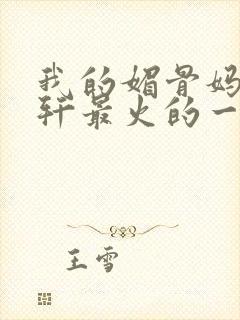 我的媚骨妈
轩最火的一
王雪